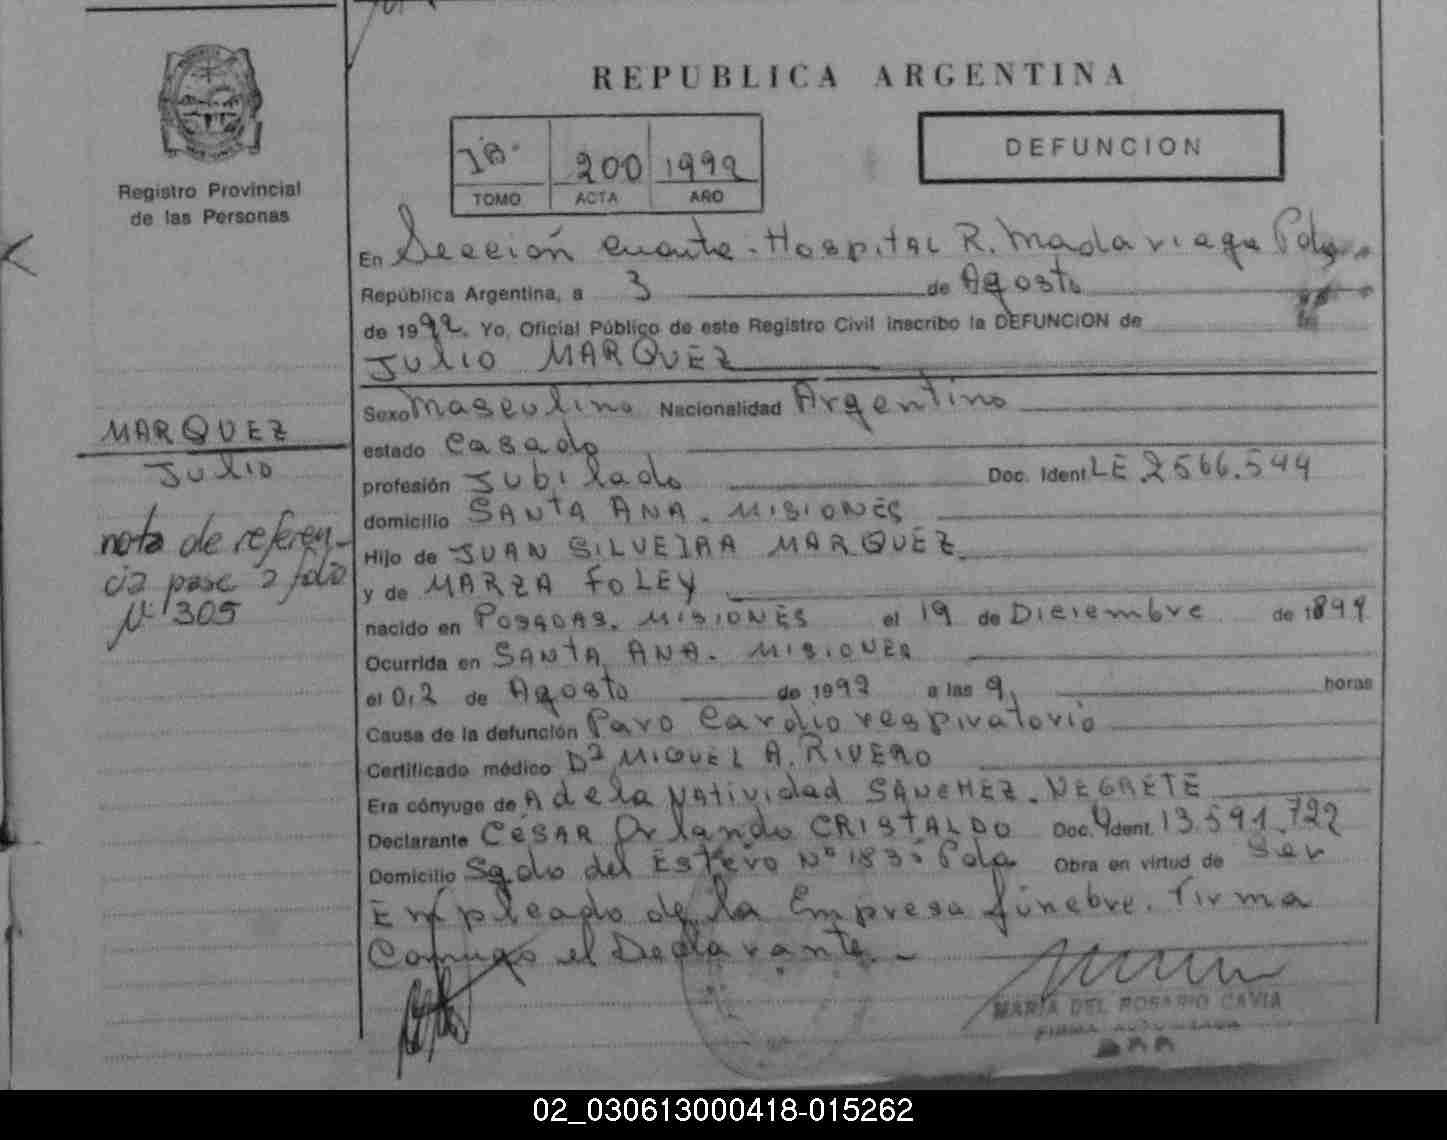 REPUBLICA ARGENTINA
Registro Provincial
de las Personas
1B. 200 1992
TOMO ACTA AÑO
DEFUNCION
En Sección cuarta. Hospital R. Madariaga Pdas.
República Argentina, a 3 de Agosto
de 1992. Yo, Oficial Público de este Registro Civil inscribo la DEFUNCION de
Julio MARQUEZ
MARQUEZ
Julio
nota de referen-
cia pase a folio
Nº 305
Sexo Masculino Nacionalidad Argentino
estado Casado
profesión Jubilado Doc. Ident. LE 2566.544
domicilio SANTA ANA. MISIONES
Hijo de JUAN SILVEIRA MARQUEZ
y de MARZA FOLEY
nacido en POSADAS. MISIONES el 19 de Diciembre de 1899
Ocurrida en SANTA ANA. MISIONES
el 02 de Agosto de 1992 a las 9, horas
Causa de la defunción Paro Cardio respiratorio
Certificado médico Dr MIGUEL A. RIVERO
Era cónyuge de Adela Natividad SANCHEZ. NEGRETE
Declarante CÉSAR Orlando CRISTALDO Doc. Ident. 13.591.722
Domicilio Sgdo del Estero Nº 183 Pdas Obra en virtud de Ser
Empleado de la Empresa fúnebre. Firma
Conmigo el Declarante.-
MARIA DEL ROSARIO CAVIA
FIRMA AUTORIZADA
02_030613000418-015262